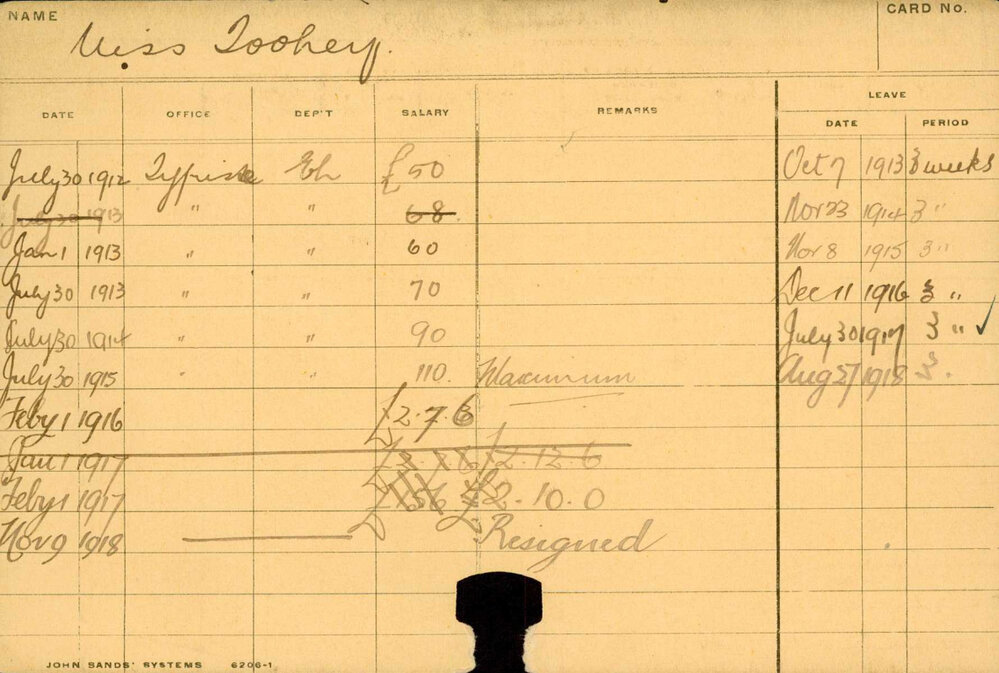 NAME Miss Toohey. CARD No.
LEAVE
DATE OFFICE DEP'T SALARY REMARKS DATE PERIOD
July 30 1912 Typiste Ch £50 Oct 7 1913 3 weeks
July 30 1913 " " 68 Nov 23 1914 3 "
Jan 1 1913 " " 60 Nov 8 1915 3 "
July 30 1913 " " 70 Dec 11 1916 3 "
July 30 1914 " " 90 July 30 1917 3 " ✓
July 30 1915 " " 110. Maximum Aug 27 1918 3 .
Feby 1 1916 £2.7.6
Jan 1 1917 £2.12.6
Feby 1 1917 £156 £2.10.0
Nov 9 1918 Resigned
JOHN SANDS' SYSTEMS 6206-1